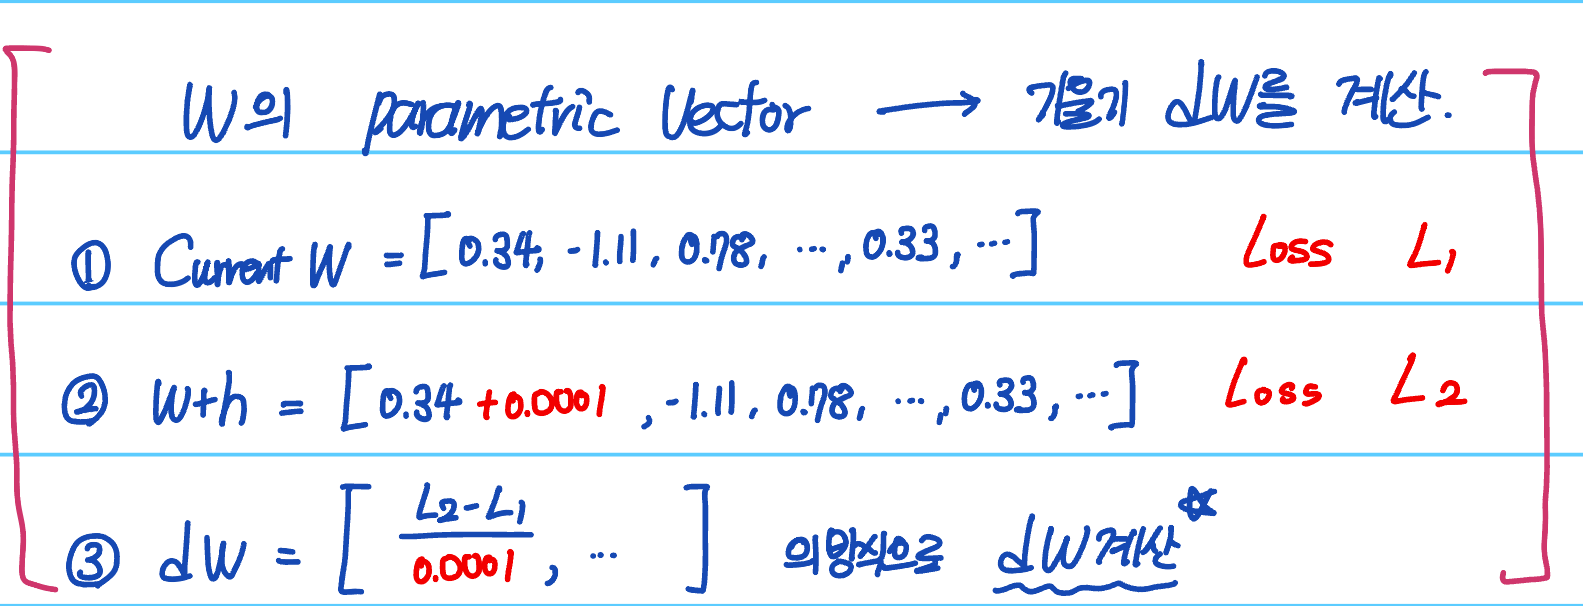 W의 parametric Vector → 기울기 dW를 계산.
① Current W = [0.34, -1.11, 0.78, ..., 0.33, ...] Loss L₁
② W+h = [0.34 +0.0001, -1.11, 0.78, ..., 0.33, ...] Loss L₂
③ dW = [(L₂-L₁)/0.0001, ...] dW계산☆